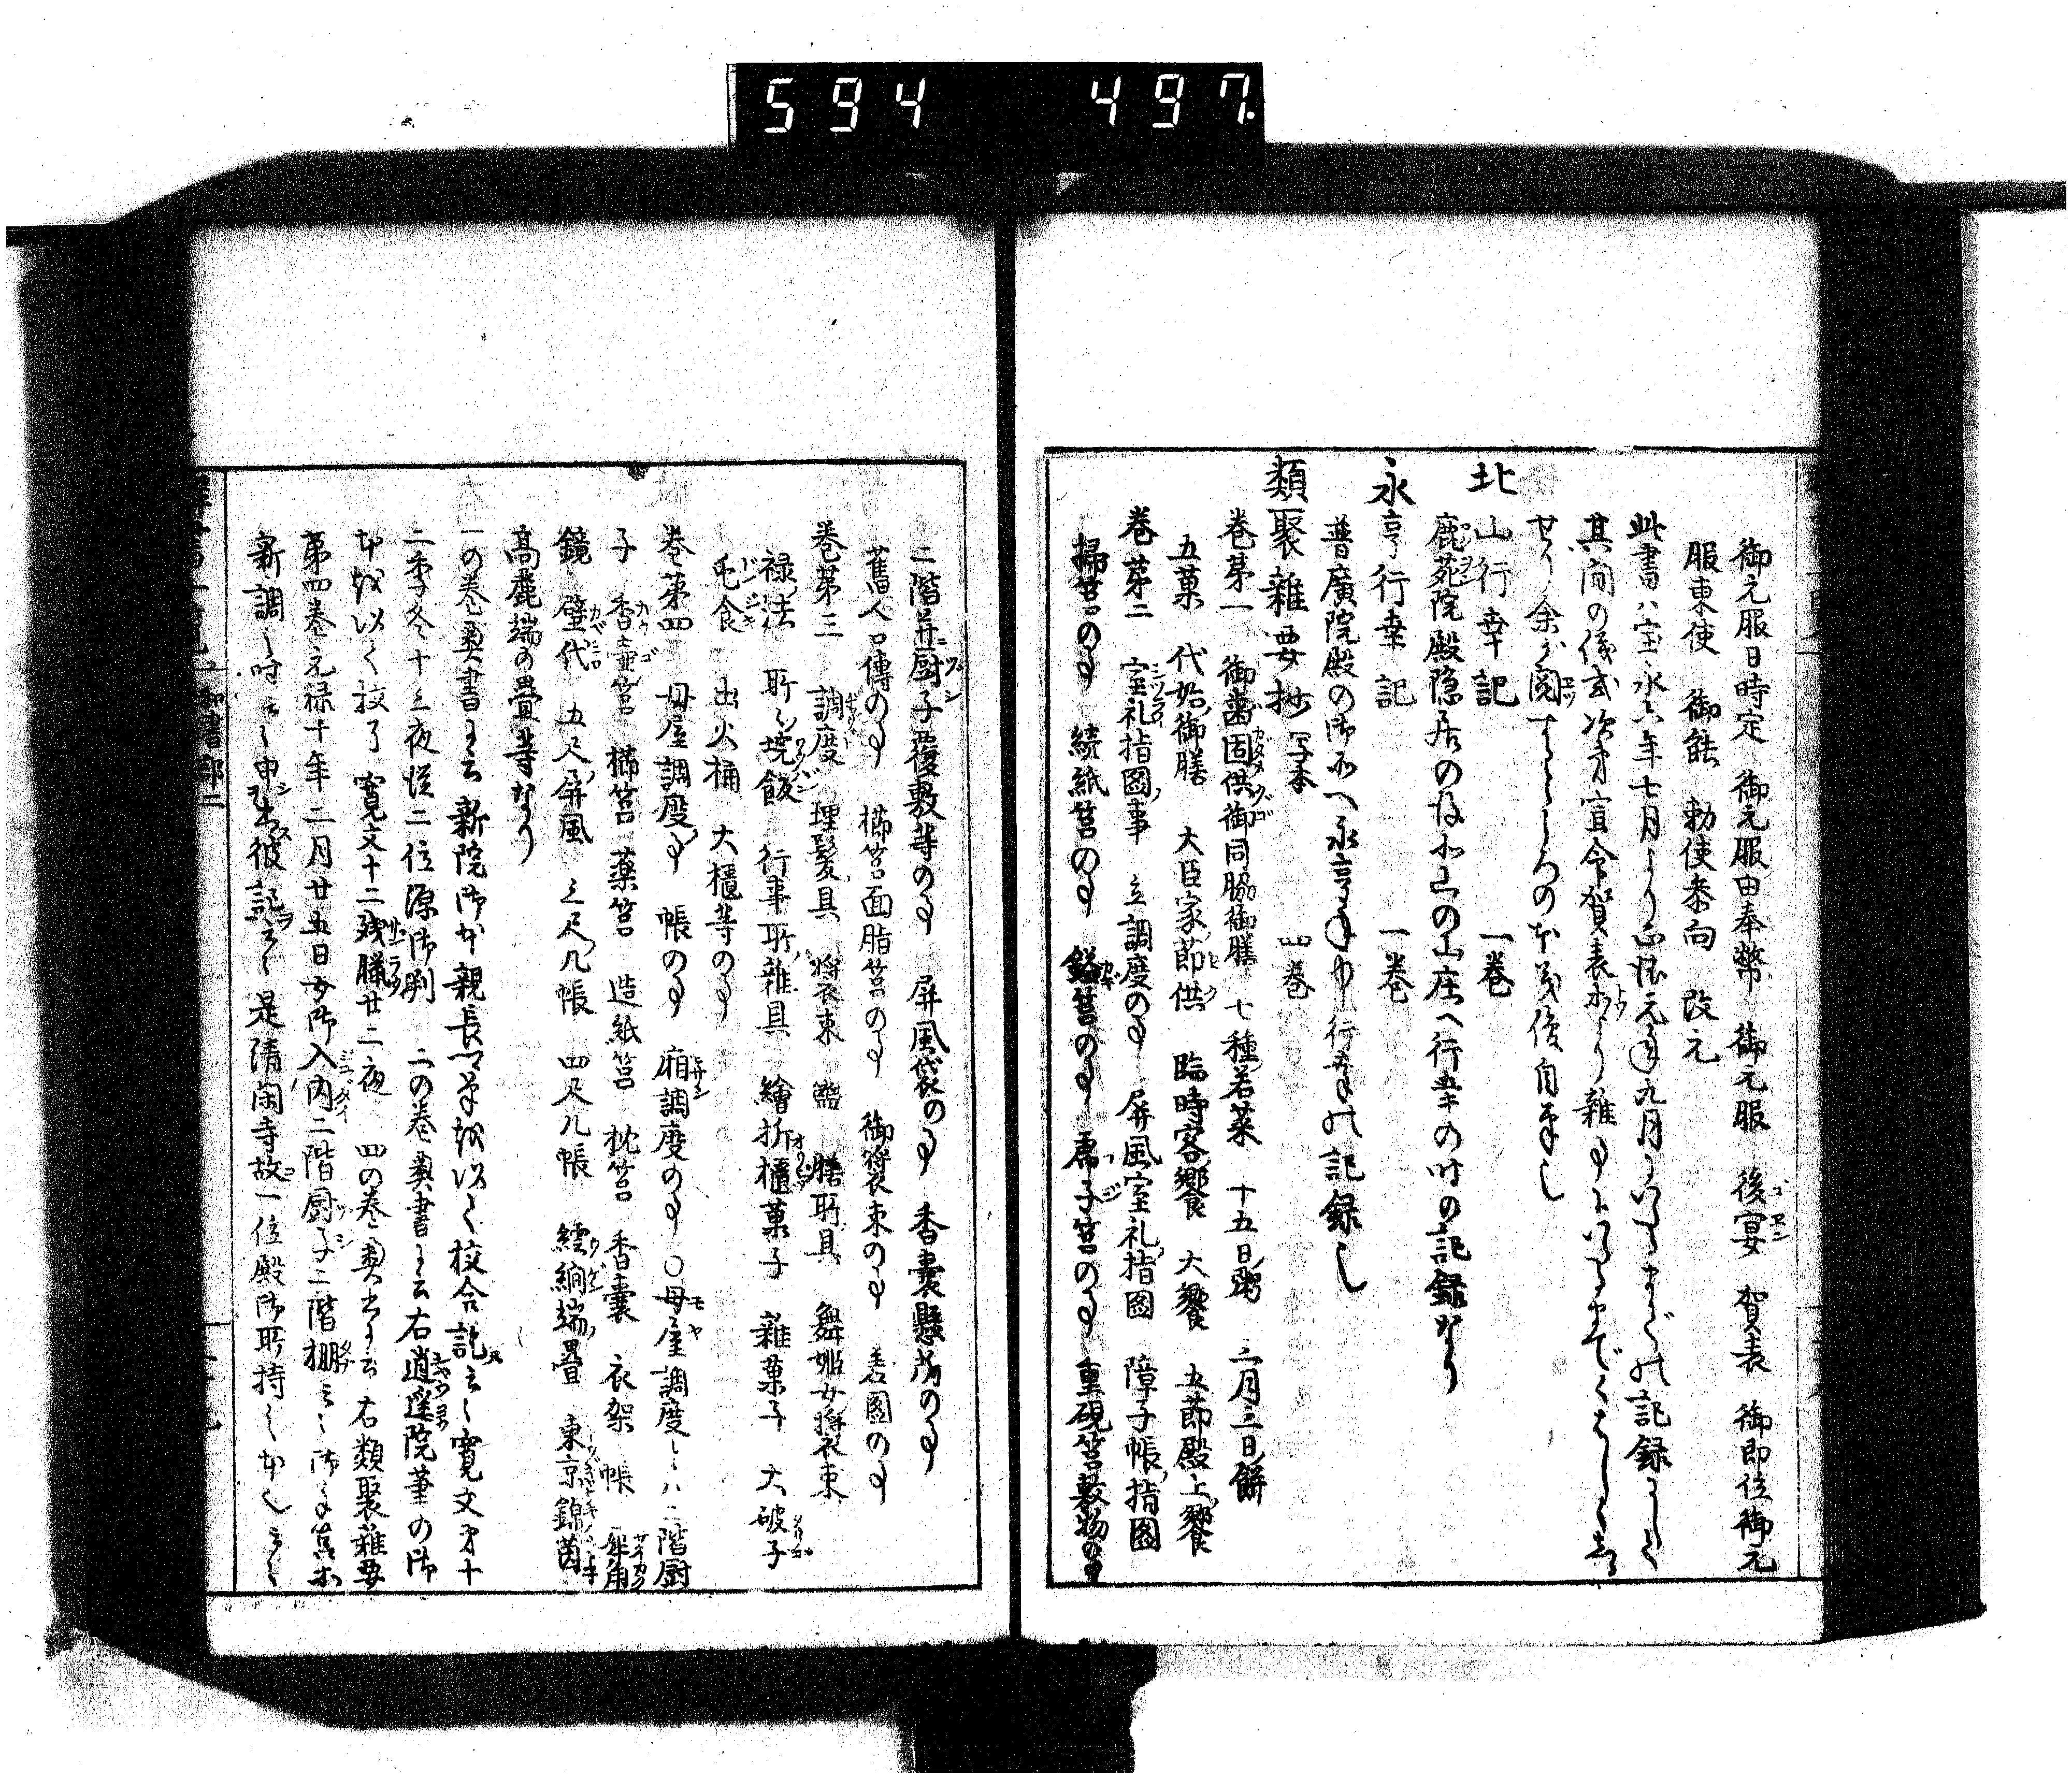 594 497.
御元服日時定 御元服由奉幣 御元服 後宴 賀表 御即位御元
服東使 御能 勅使参向 改元
此書ハ宝永六年七月より正徳元年九月にいたるまでの記録にして
其間の儀式次第宣命賀表等より雑事にいたるまで
せり余が閲
北山行幸記 一巻
鹿苑院殿隠居ののち北山の山庄へ行幸の時の記録なり
永享行幸記 一巻
普廣院殿の御所へ永享年中行幸の記録也
類聚雑要抄 写本 四巻
巻第一 御歯固供御同脇御膳 七種若菜 十五日粥 三月三日餅
五菓 代始御膳 大臣家節供 臨時客饗 大饗 五節殿上饗
巻第二 室礼指図事 立調度の事 屏風室礼指図 障子帳指図
掃筥の事 続紙筥の事 鎰筥の事 厨子筥の事 重硯筥敷物の事
二階并厨子覆敷等の事 屏風袋の事 香嚢懸所の事
蓋旧人口傳の事 櫛筥面脂筥の事 御装束の事 差図の事
巻第三 調度 理髪具 装束 膳所具 舞姫女装束
禄法 所々埦飯 行事所雑具 繪折櫃菓子 雑菓子 大破子
屯食 出火桶 大櫃等の事
巻第四 母屋調度事 帳の事 廂調度の事 ○母屋調度とハ二階厨
子 香壷筥 櫛筥 薬筥 造紙筥 枕筥 香嚢 衣架 帳 犀角
鏡 壁代 五尺屏風 三尺几帳 四尺几帳 繧繝端畳 東京錦茵
高麗端の畳等なり
一の巻奥書に云新院御本親長卿筆を以て校合訖云々寛文第十
二季冬十三夜従二位源御判 二の巻奥書に云右逍遥院筆の御
本を以て校了寛文十二残臘廿二夜 四の巻奥書に云右類聚雑要
第四巻元禄十年二月廿五日女御入内二階厨子二階棚云々御手筥等
新調之時云々申出彼記云々是清閑寺故一位殿御所持之本也云々